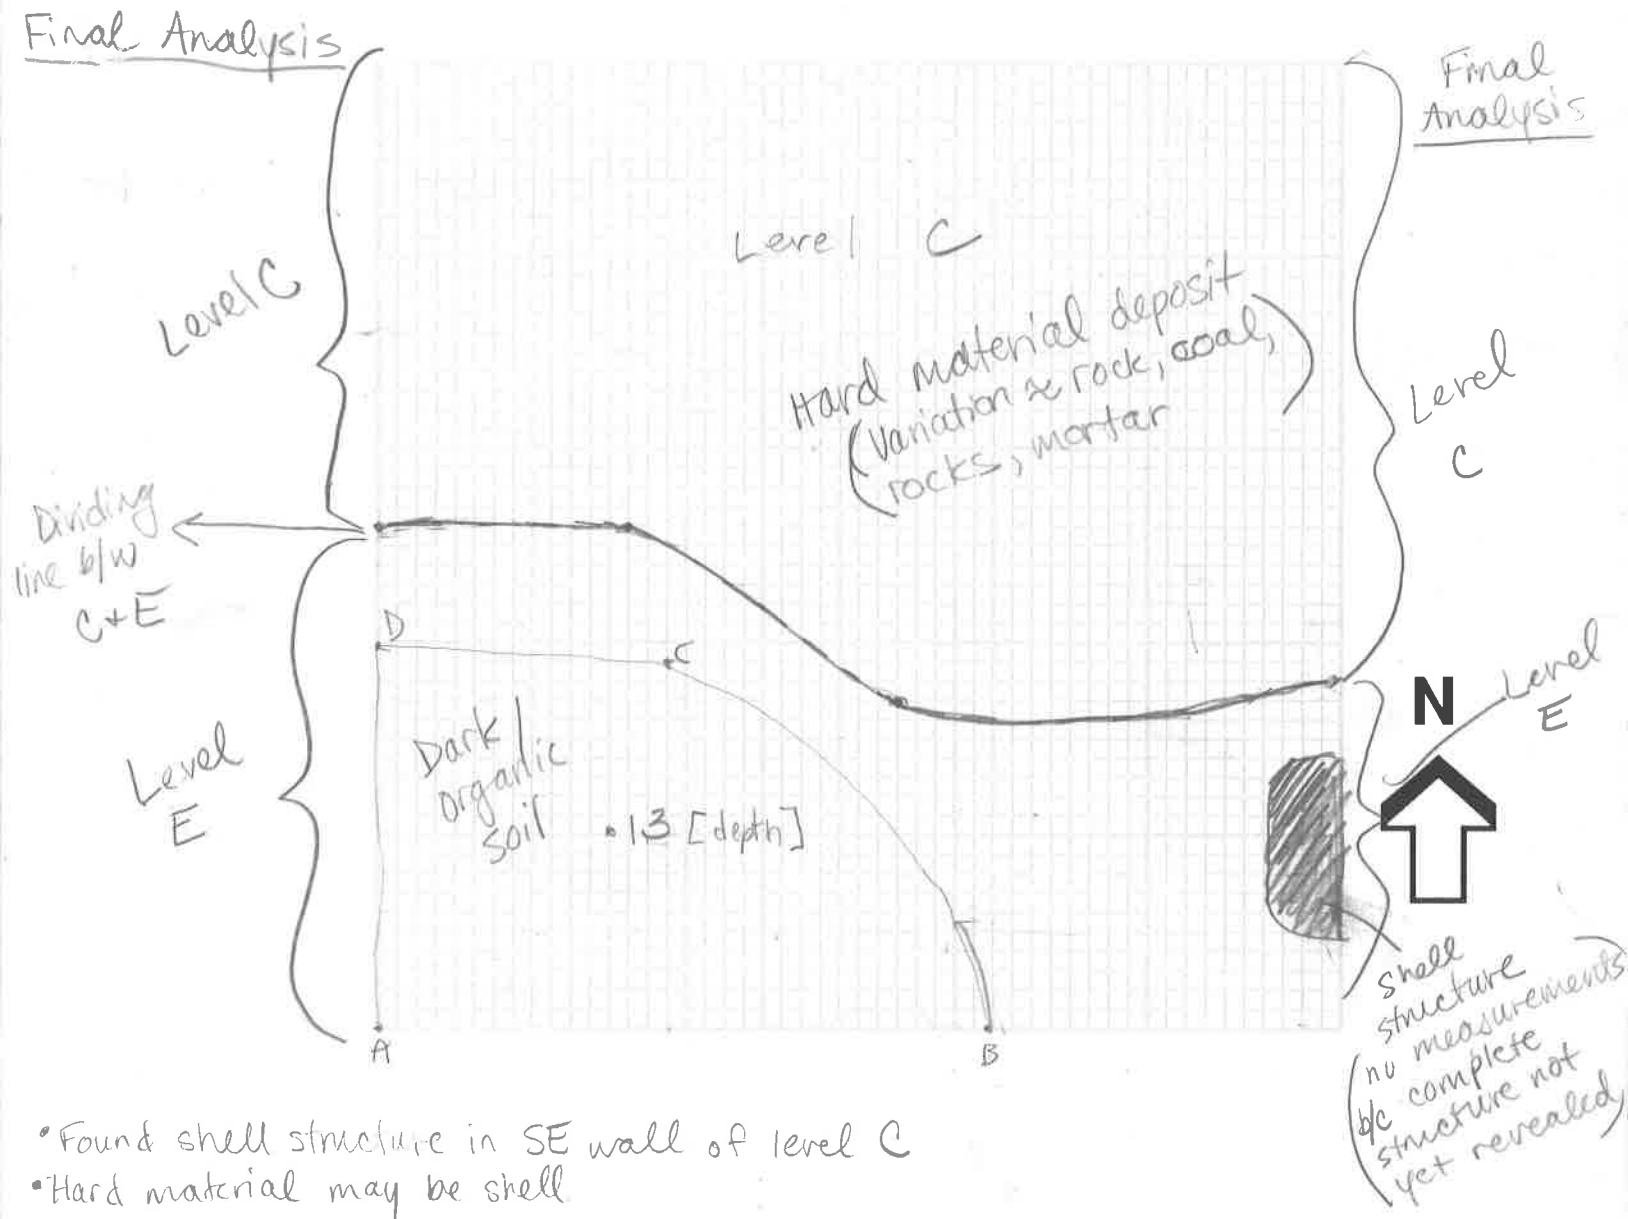 Final Analysis
Final
Analysis
Level C
Level C
Hard material deposit
(Variation ≈ rock, coal,
rocks, mortar)
Level
C
Dividing
line b/w
C + E
D
C
Level
E
Dark
organic
soil
.13 [depth]
Level
E
N
A
B
shell
structure
(no measurements
b/c complete
structure not
yet revealed)
•Found shell structure in SE wall of level C
•Hard material may be shell